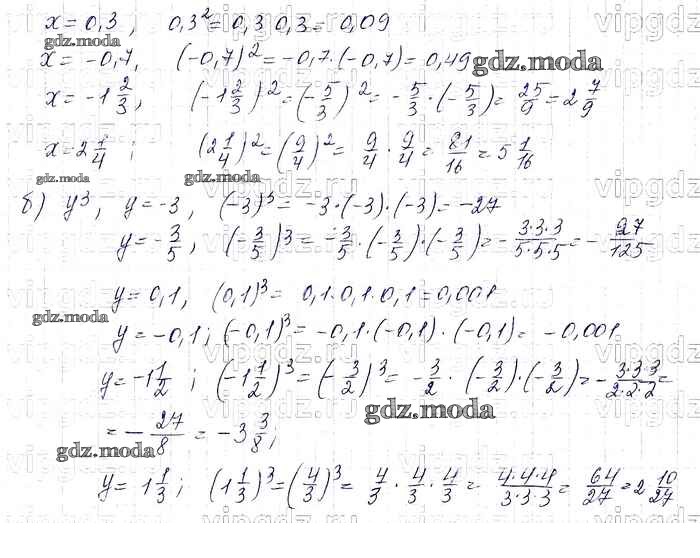 x = 0,3, 0,3² = 0,3·0,3 = 0,09
gdz.moda
x = -0,7, (-0,7)² = -0,7·(-0,7) = 0,49
gdz.moda
x = -1 2/3, (-1 2/3)² = (-5/3)² = -5/3·(-5/3) = 25/9 = 2 7/9
x = 2 1/4; (2 1/4)² = (9/4)² = 9/4 · 9/4 = 81/16 = 5 1/16
gdz.moda gdz.moda
б) y³, y = -3, (-3)³ = -3·(-3)·(-3) = -27
y = -3/5, (-3/5)³ = -3/5·(-3/5)·(-3/5) = -3·3·3/5·5·5 = -27/125
y = 0,1, (0,1)³ = 0,1·0,1·0,1 = 0,001
gdz.moda
y = -0,1; (-0,1)³ = -0,1·(-0,1)·(-0,1) = -0,001
y = -1 1/2; (-1 1/2)³ = (-3/2)³ = -3/2·(-3/2)·(-3/2) = -3·3·3/2·2·2 =
gdz.moda
= -27/8 = -3 3/8;
gdz.moda
y = 1 1/3; (1 1/3)³ = (4/3)³ = 4/3 · 4/3 · 4/3 = 4·4·4/3·3·3 = 64/27 = 2 10/27
gdz.moda